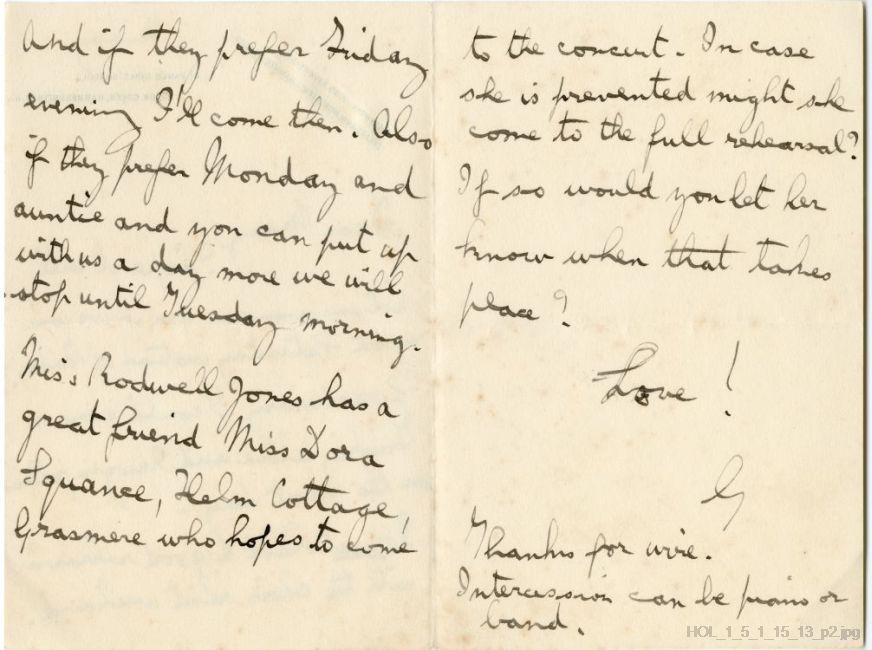 And if they prefer Friday
evening I'll come then. Also
if they prefer Monday and
auntie and you can put up
with us a day more we will
stop until Tuesday morning.
Miss Rodwell Jones has a
great friend Miss Dora
Squance, Helm Cottage,
Grasmere who hopes to come
to the concert. In case
she is prevented might she
come to the full rehearsal?
If so would you let her
know when that takes
place?
Love!
G
Thanks for wire.
Intercession can be piano or
band.
HOL_1_5_1_15_13_p2.jpg